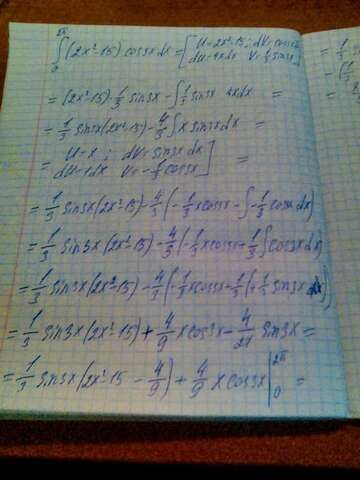 ∫₀^{2π} (2x²-15) cos3x dx = [U=2x²-15; dV=cos3x
dU=4x dx V=1/3 sin3x]
= (2x²-15)·1/3 sin3x - ∫1/3 sin3x 4x dx =
= 1/3 sin3x(2x²-15) - 4/3 ∫x sin3x dx =
= U=x; dV=sin3x dx
dU=1dx V=-1/3 cos3x] =
= 1/3 sin3x(2x²-15) - 4/3 (-1/3 x cos3x - ∫-1/3 cos3x dx)
= 1/3 sin3x(2x²-15) - 4/3 (-1/3 x cos3x + 1/3 ∫cos3x dx)
= 1/3 sin3x(2x²-15) - 4/3 (-1/3 x cos3x + 1/3 (+1/3 sin3x
= 1/3 sin3x(2x²-15) + 4/9 x cos3x - 4/27 sin3x =
= 1/3 sin3x(2x²-15 - 4/9) + 4/9 x cos3x |₀^{2π} =